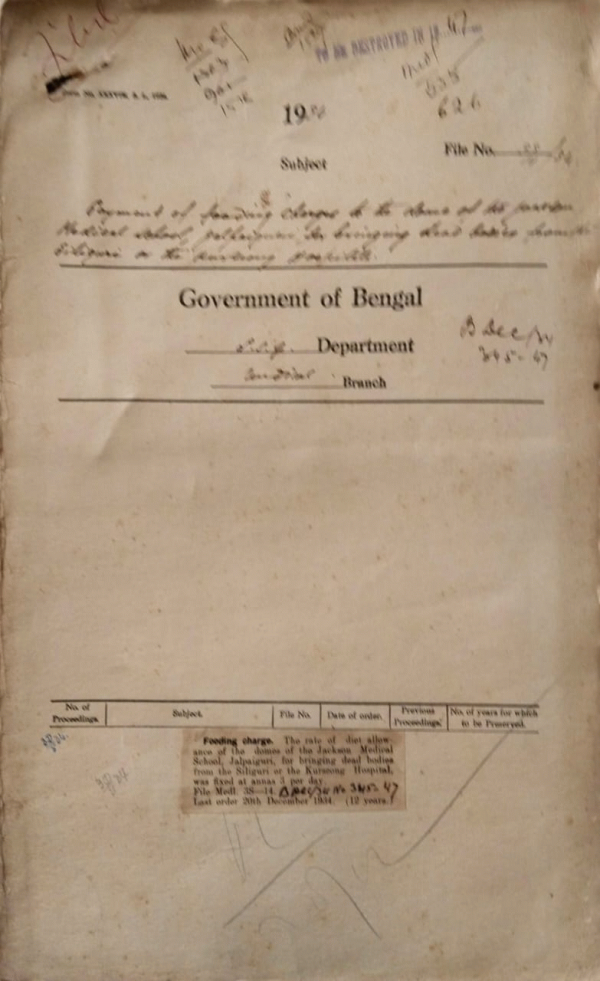 TO BE DESTROYED IN 19 47
Medl
635
626
19 34
File No.
Subject
Payment of feeding charges to the domes of the Jackson
Medical School, Jalpaiguri for bringing dead bodies from
Siliguri or the Kurseong Hospital.
Government of Bengal
Department
Medical Branch
B Dec/34
345-47
No. of Proceedings. Subject. File No. Date of order. Previous Proceedings. No. of years for which to be Preserved.
Feeding charge. The rate of diet allow-
ance of the domes of the Jackson Medical
School, Jalpaiguri, for bringing dead bodies
from the Siliguri or the Kurseong Hospital,
was fixed at annas 3 per day
File Medl. 38—14. B Dec/34 No 345-47
Last order 20th December 1934. (12 years.)